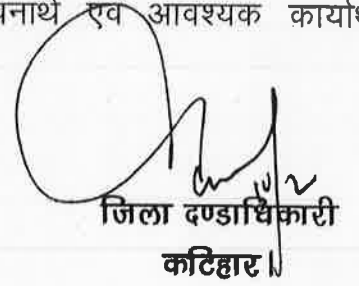 एवं आवश्यक
जिला दण्डाधिकारी
कटिहार।